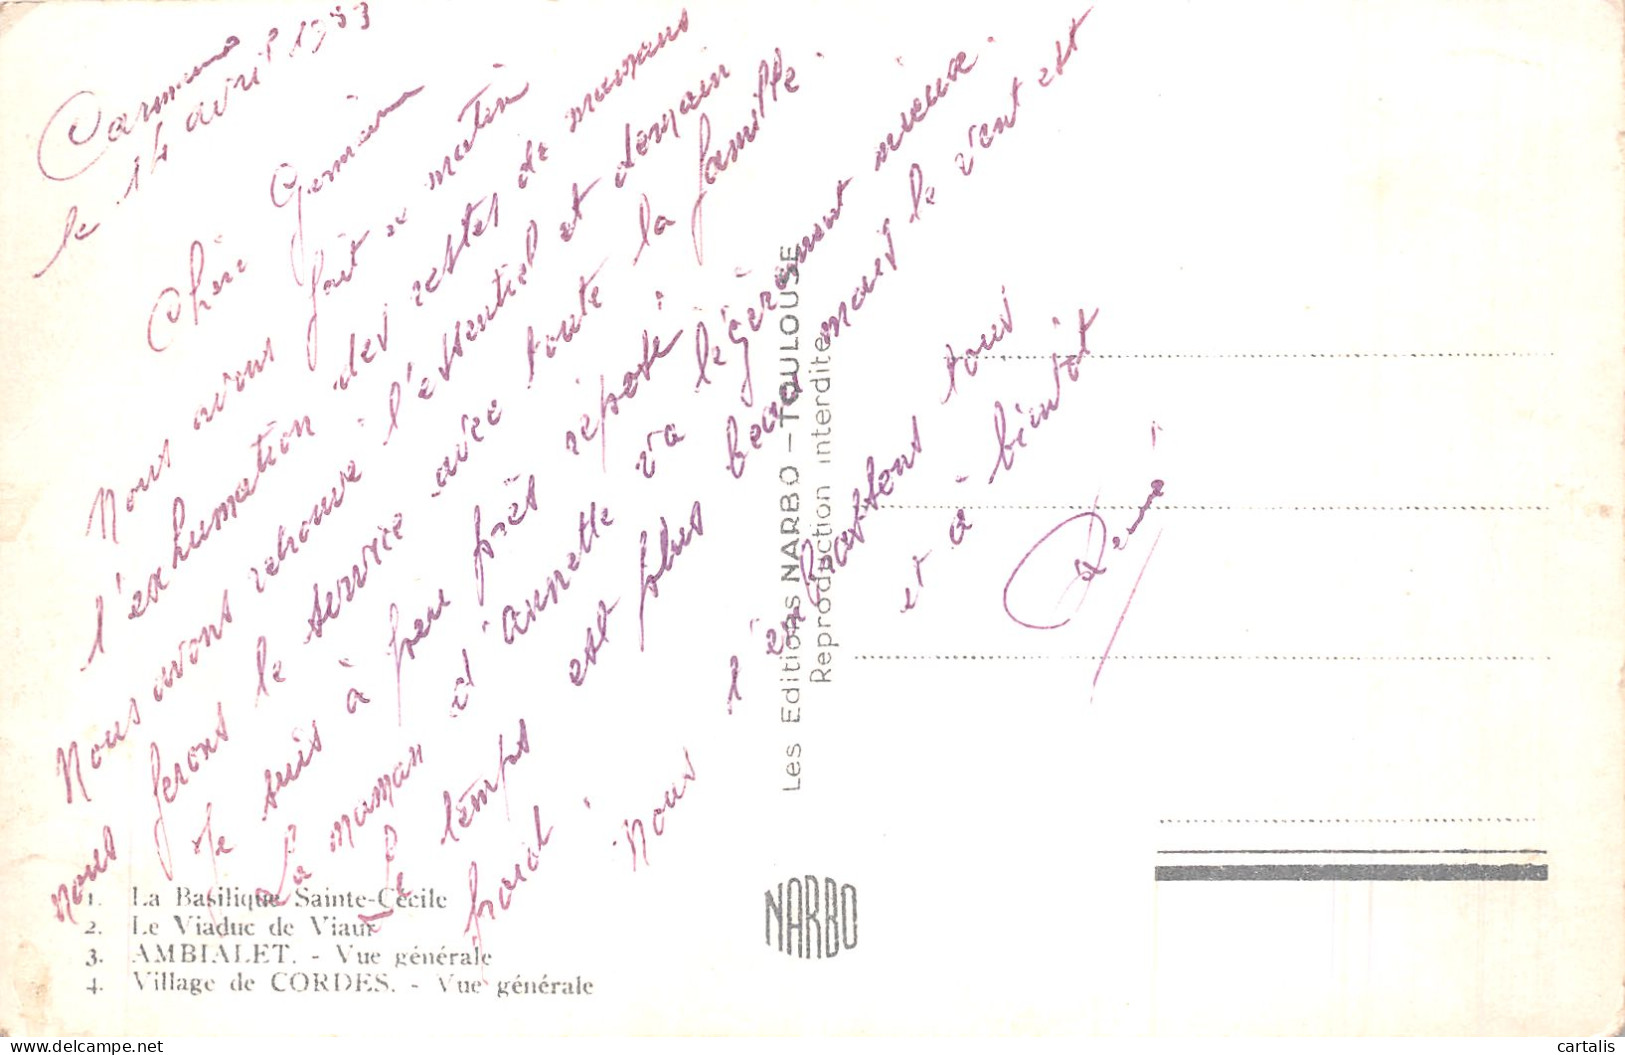 Carmaux
le 14 avril 1953
Chère Germaine
Nous avons fait ce matin
l'exhumation des restes de mamans
Nous avons retrouvé l'essentiel et demain
nous ferons le service avec toute la famille.
Je suis à peu près reposé.
La maman d'annette va légèrement mieux.
Le temps est plus beau mais le vent est
froid.
Nous t'embrassons tous
et à bientôt
Les Editions NARBO - TOULOUSE
Reproduction interdite
1. La Basilique Sainte-Cécile
2. Le Viaduc de Viaur
3. AMBIALET. - Vue générale
4. Village de CORDES. - Vue générale
NARBO
cartalis